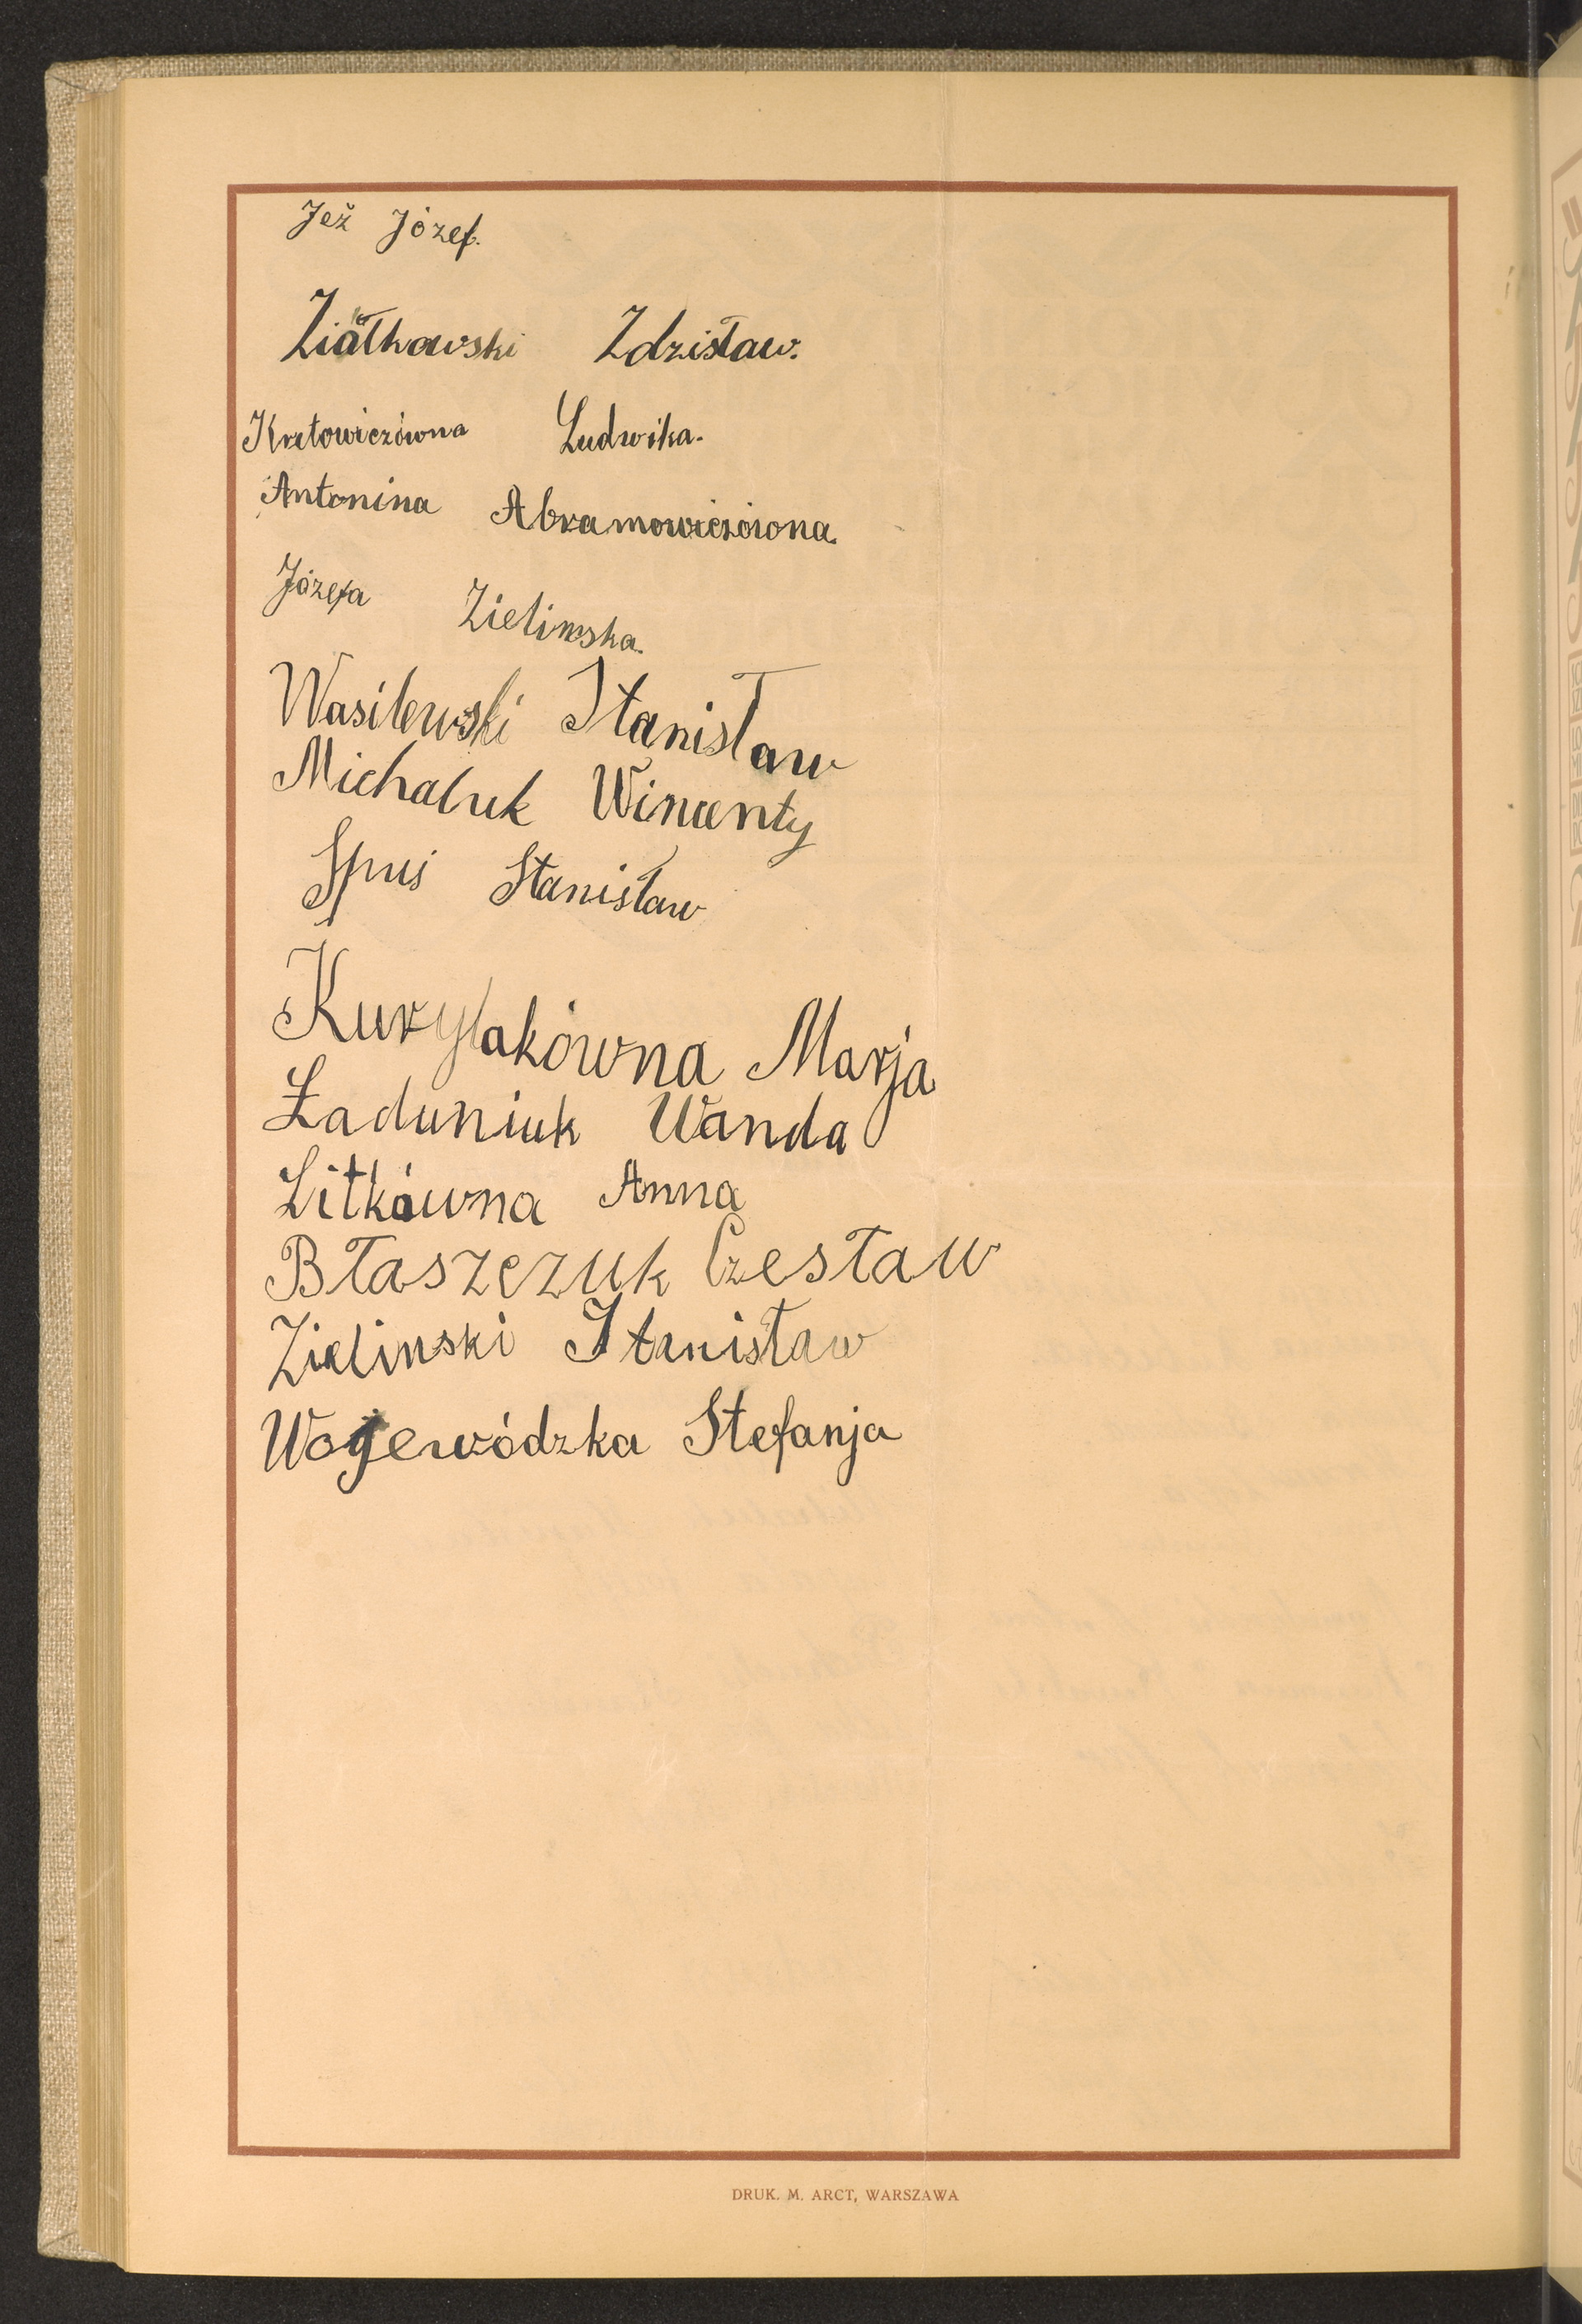 Jeż Józef.
Ziółkowski Zdzisław.
Kretowiczówna Ludwika.
Antonina Abramowiczówna.
Józefa Zielinska.
Wasilewski Stanisław
Michaluk Wincenty
Spuś Stanisław
Kurylakówna Marja
Ładuniuk Wanda
Litkówna Anna
Błaszczuk Czesław
Zielinski Stanisław
Wojewódzka Stefanja
DRUK. M. ARCT, WARSZAWA